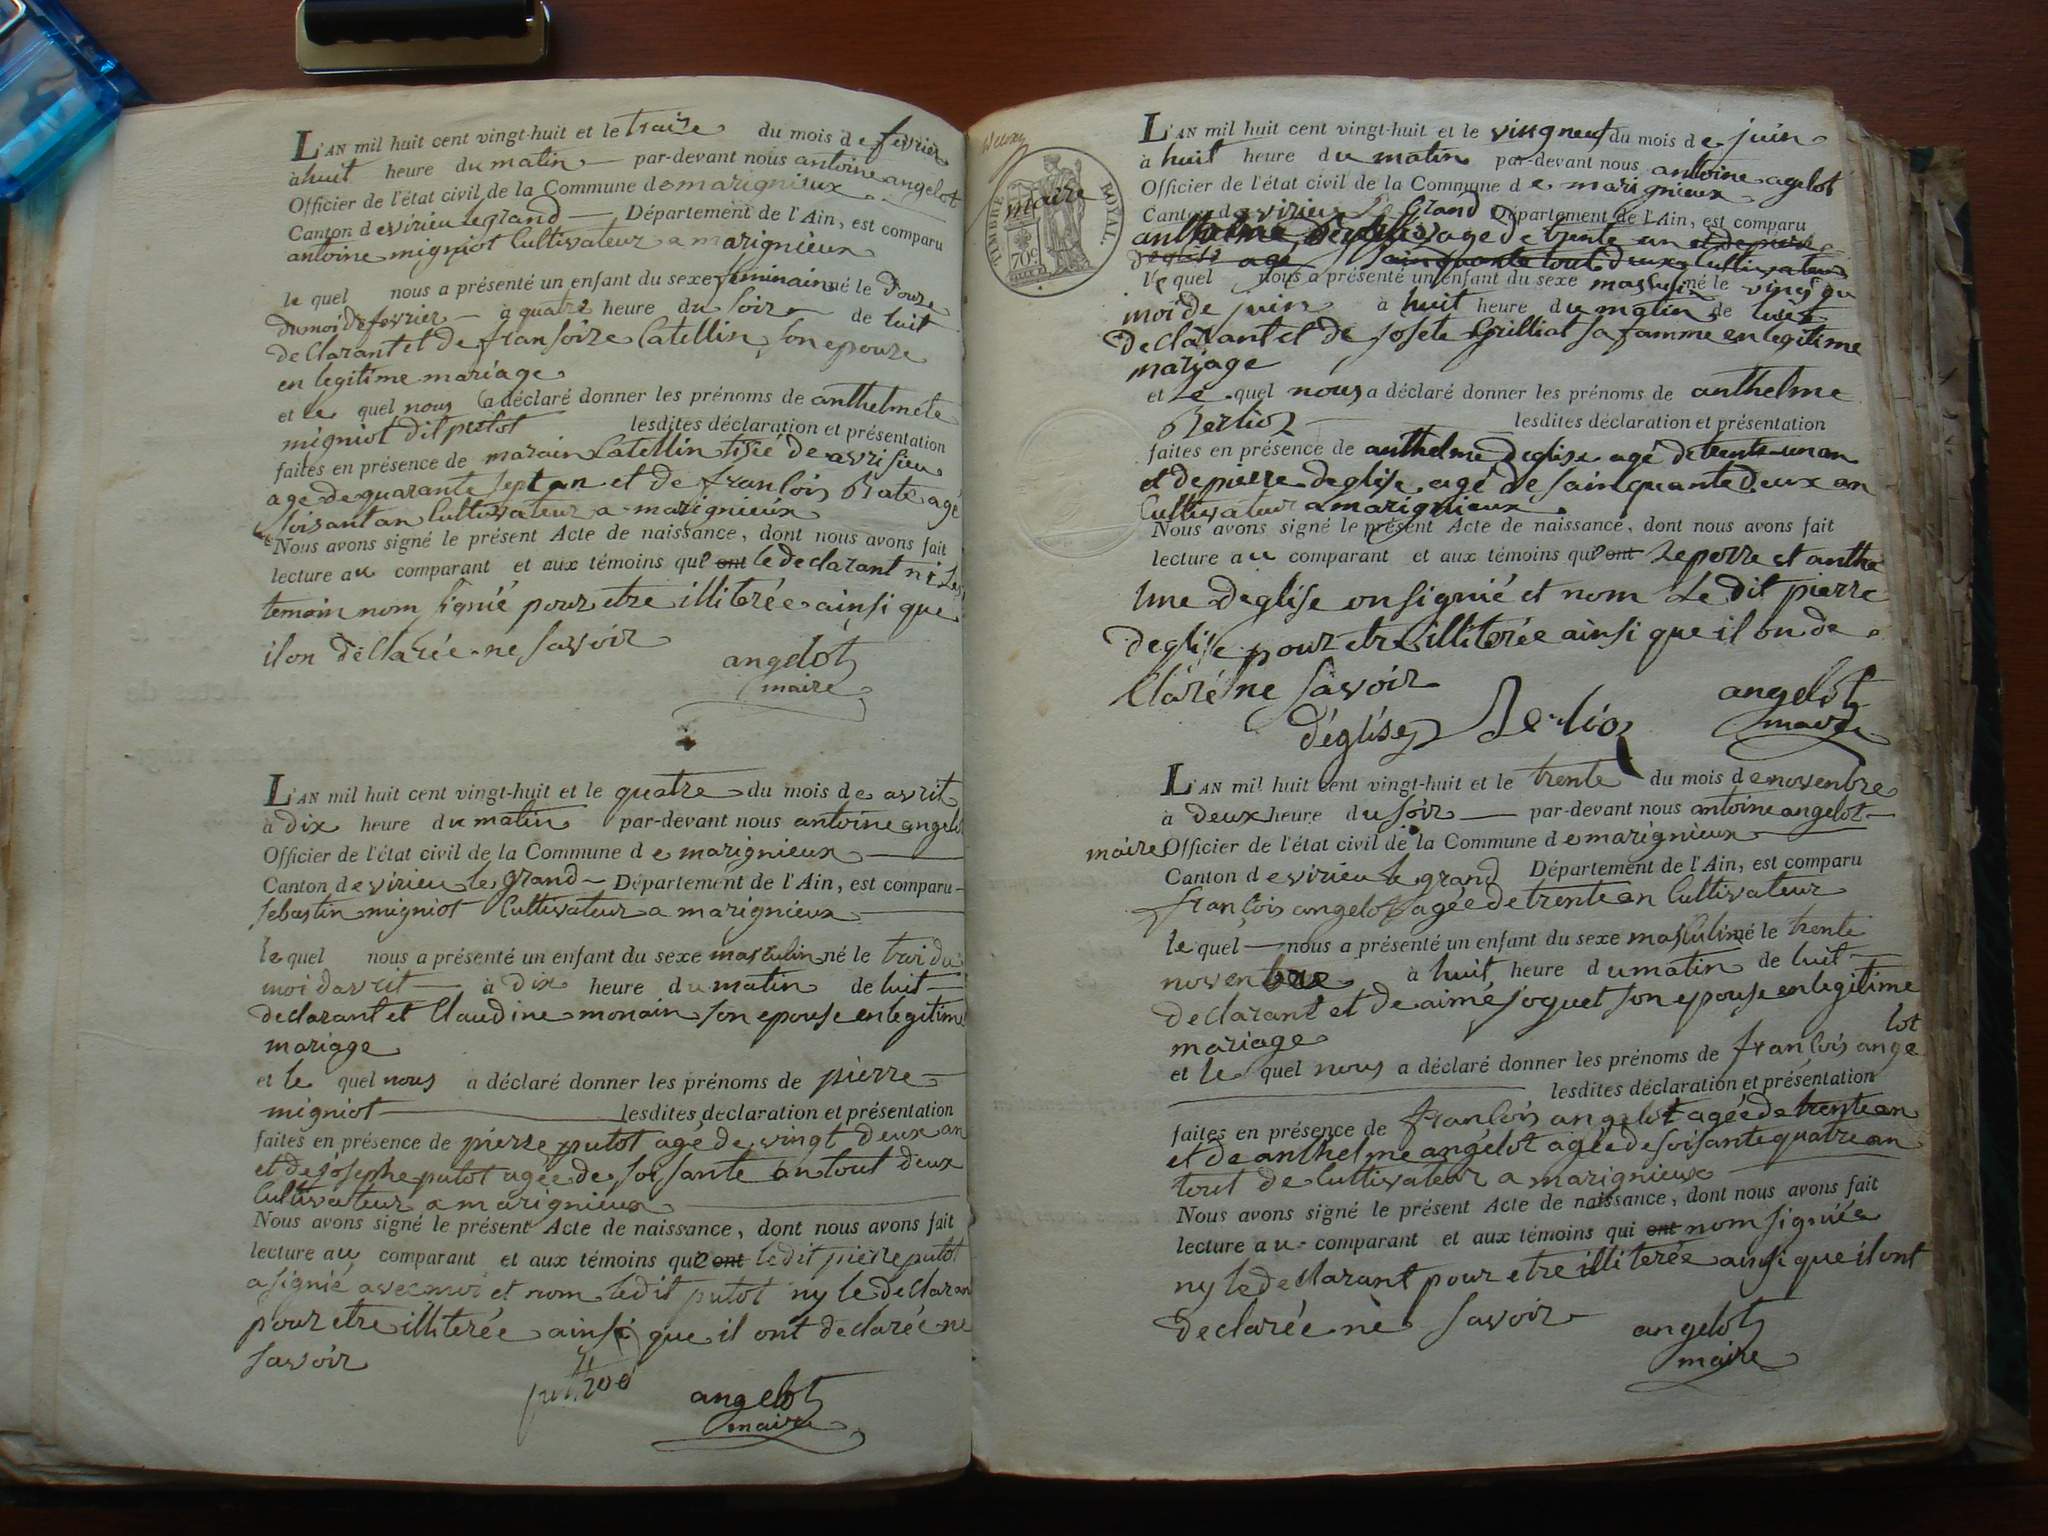 L'AN mil huit cent vingt-huit et le traize du mois de fevrier
à huit heure du matin par-devant nous antoine angelot
Officier de l'état civil de la Commune de marignieux
Canton de virieu le grand Département de l'Ain, est comparu
antoine migniot Cultivateur a marignieux
le quel nous a présenté un enfant du sexe feminain né le douze
du moi de fevrier à quatre heure du soir de luit
declarant et de fransoize Catellin son epouze
en legitime mariage
et le quel nous a déclaré donner les prénoms de anthelmete
migniot dit putot lesdites déclaration et présentation
faites en présence de marain Catellin tisié de avrisieu
age de quarante sept an et de francois Rate agé
soisant an Cultivateur a marignieux
Nous avons signé le présent Acte de naissance, dont nous avons fait
lecture au comparant et aux témoins qui ont le declarant ni les
temoin nom signié pour etre illiterée ainsi que
il on declarée ne savoir
angelot
maire
L'AN mil huit cent vingt-huit et le quatre du mois de avrit
à dix heure du matin par-devant nous antoine angelot
Officier de l'état civil de la Commune de marignieux
Canton de virieu le grand Département de l'Ain, est comparu
sebastin migniot Cultivateur a marignieux
le quel nous a présenté un enfant du sexe masculin né le troi du
moi davrit à dix heure du matin de luit
declarant et Claudine monain son epouse en legitime
mariage
et le quel nous a déclaré donner les prénoms de pierre
migniot lesdites declaration et présentation
faites en présence de pierre putot agé de vingt deux an
et de josephe putot agée de soissante an tout deux
Cultivateur a marignieux
Nous avons signé le présent Acte de naissance, dont nous avons fait
lecture au comparant et aux témoins qui ont ledit pierre putot
a signié avec moi et nom ledit putot ny le declaran
pour etre illiterée ainsi que il ont declarée ne
savoir
angelot
maire
TIMBRE ROYAL
70c
maire
L'AN mil huit cent vingt-huit et le vingneuf du mois de juin
à huit heure du matin par-devant nous antoine agelot
Officier de l'état civil de la Commune de marignieux
Canton de virieu Le Grand Département de l'Ain, est comparu
anthelme Berlioz age de trente un et de pierre
deglise age sainquante tout deux Cultivateur
le quel nous a présenté un enfant du sexe masculin né le vingt du
moi de juin à huit heure du matin de luit
declarant et de josete Grilliat sa famme en legitime
mariage
et Le quel nous a déclaré donner les prénoms de anthelme
Berlioz lesdites déclaration et présentation
faites en présence de anthelme deglise agé de trente un an
et de pierre deglise agé de sainquante deux an
Cultivateur a marignieux
Nous avons signé le présent Acte de naissance, dont nous avons fait
lecture au comparant et aux témoins qui ont Le perre et anthe
lme deglise on signié et nom Le dit pierre
deglise pour etre illiterée ainsi que il on de
claré ne savoir
angelot
déglise Berlioz maire
L'AN mil huit cent vingt-huit et le trente du mois de novenbre
à deux heure du soir par-devant nous antoine angelot
maire Officier de l'état civil de la Commune de marignieux
Canton de virieu le grand Département de l'Ain, est comparu
françois angelot agée de trente an Cultivateur
le quel nous a présenté un enfant du sexe masculin né le trente
novenbre à huit heure du matin de luit
declarant et de aimé joquet son epouse en legitime
mariage
et le quel nous a déclaré donner les prénoms de françois ange
lot
lesdites déclaration et présentation
faites en présence de francois angelot agée de trente an
et de anthelme angelot agée de soisante quatre an
tout de Cultivateur a marignieux
Nous avons signé le présent Acte de naissance, dont nous avons fait
lecture au comparant et aux témoins qui ont nom signiée
ny le declarant pour etre illiterée ainsi que il ont
declarée ne savoir
angelot
maire